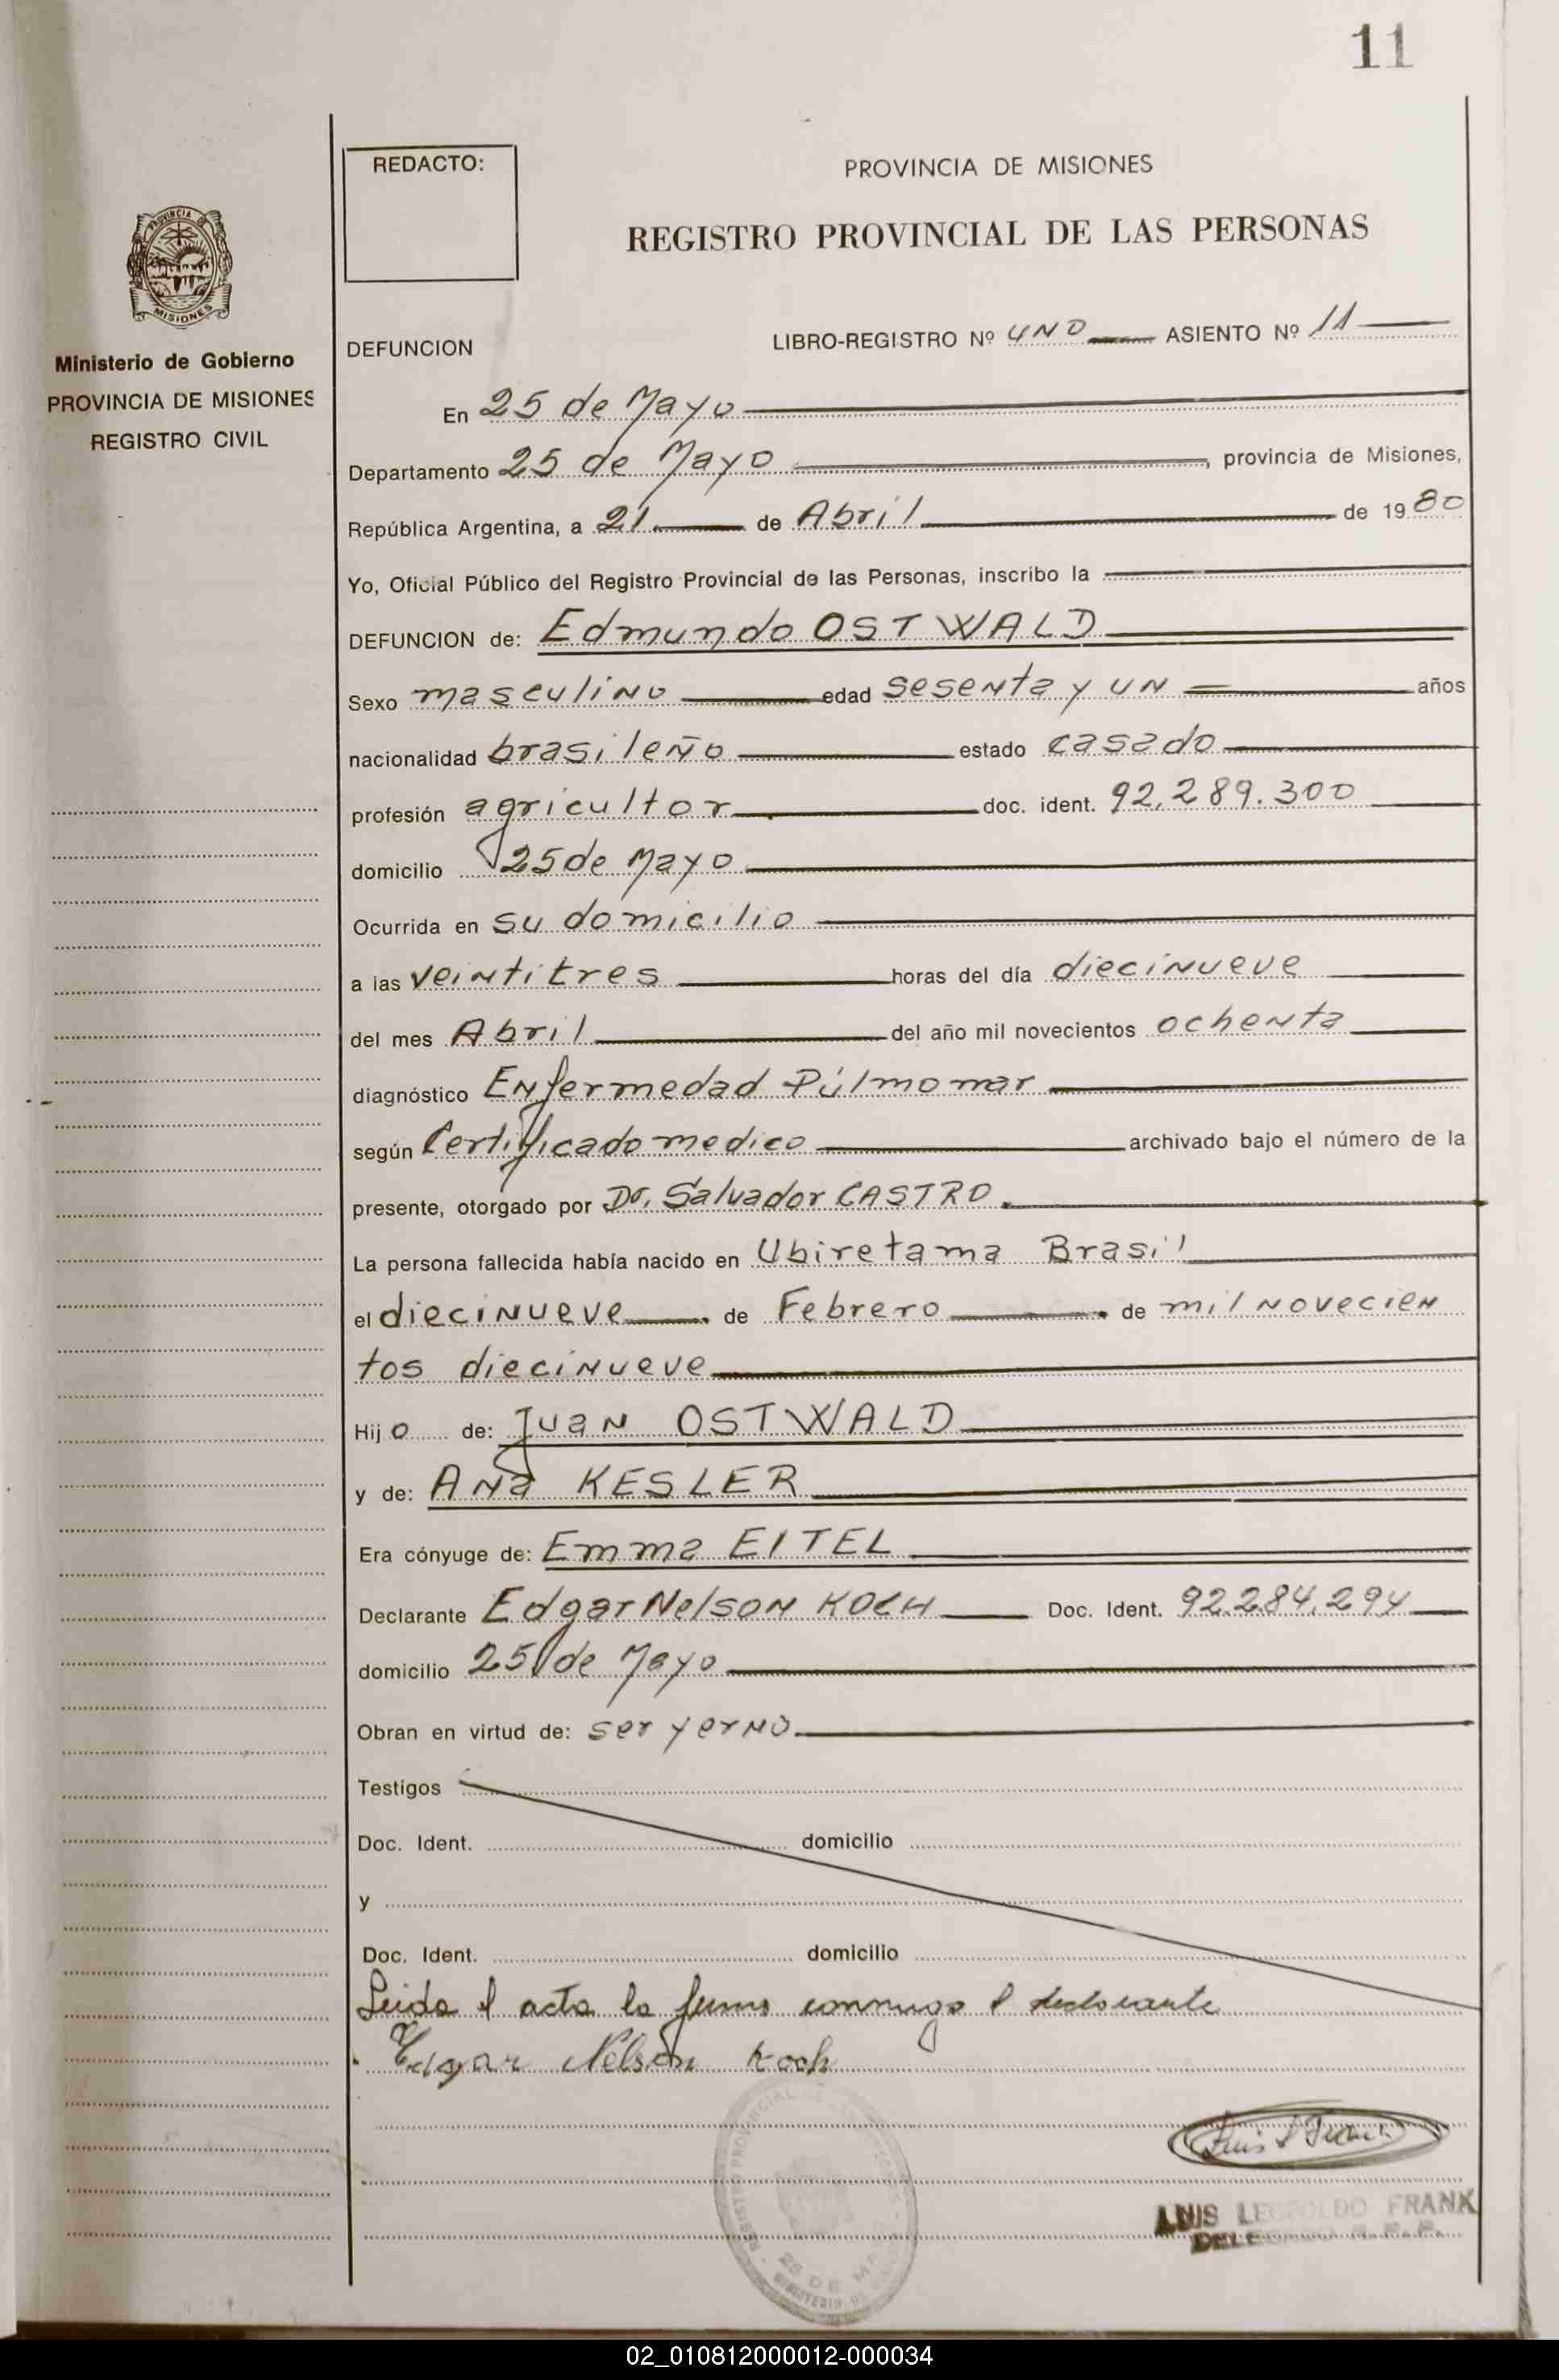 11
REDACTO:
PROVINCIA DE MISIONES
REGISTRO PROVINCIAL DE LAS PERSONAS
PROVINCIA DE
MISIONES
Ministerio de Gobierno
PROVINCIA DE MISIONES
REGISTRO CIVIL
DEFUNCION LIBRO-REGISTRO Nº UNO ASIENTO Nº 11
En 25 de Mayo
Departamento 25 de Mayo, provincia de Misiones,
República Argentina, a 21 de Abril de 1980
Yo, Oficial Público del Registro Provincial de las Personas, inscribo la
DEFUNCION de: Edmundo OSTWALD
Sexo masculino edad sesenta y un años
nacionalidad brasileño estado casado
profesión agricultor doc. ident. 92.289.300
domicilio 25 de Mayo
Ocurrida en su domicilio
a las veintitres horas del día diecinueve
del mes Abril del año mil novecientos ochenta
diagnóstico Enfermedad Púlmomar
según Certificado medico archivado bajo el número de la
presente, otorgado por Dr. Salvador CASTRO.
La persona fallecida había nacido en Ubiretama Brasil
el diecinueve de Febrero de mil novecien
tos diecinueve
Hijo de: Juan OSTWALD
y de: Ana KESLER
Era cónyuge de: Emma EITEL
Declarante Edgar Nelson KOCH Doc. Ident. 92.284.294
domicilio 25 de Mayo
Obran en virtud de: ser yerno
Testigos
Doc. Ident. domicilio
y
Doc. Ident. domicilio
Leida el acta la firma conmigo el declarante
Edgar Nelson Koch
LUIS LEOPOLDO FRANK
DELEGADO R. P. P.
25 DE MA
02_010812000012-000034